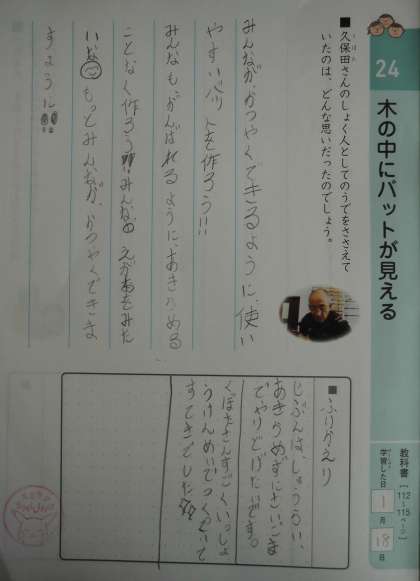 24
木の中にバットが見える
教科書【112~115ページ】
学習した日
1月18日
■久保田さんのしょく人としてのうでをささえて
いたのは、どんな思いだったのでしょう。
みんながかつやくできるように、使い
やすいバットを作ろう!!
みんなも、がんばれるように、あきらめる
ことなく作ろう!!みんなのえがおをみた
いな もっとみんなが、かつやくできま
すように!!
■ふりかえり
じぶんは、しょうらい、
あきらめずにさいごま
でやりとげたいです。
くぼたさんすごくいっしょ
うけんめいでつくっていて
すてきでした